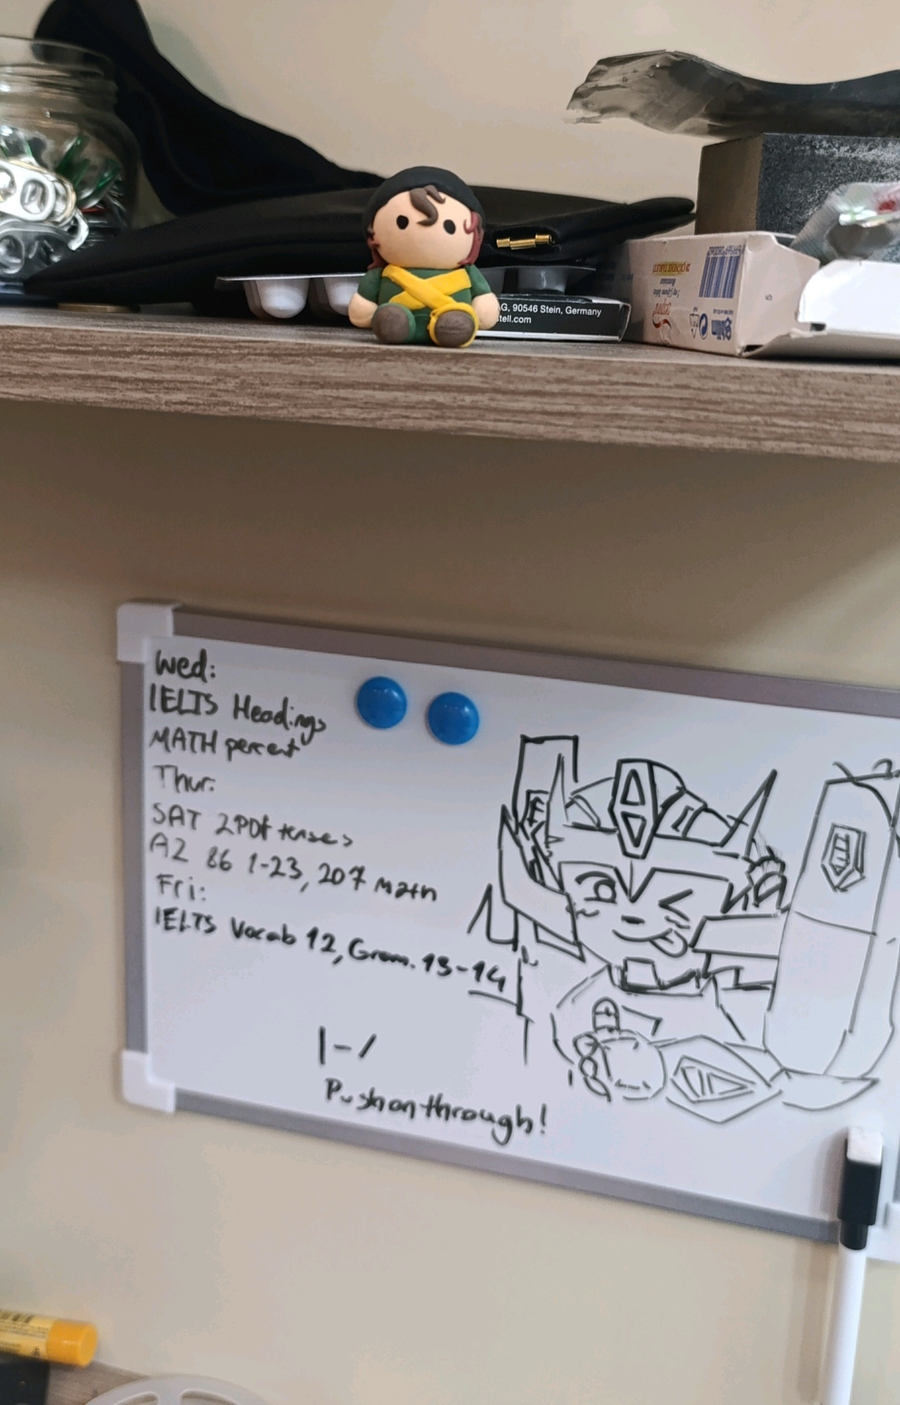 G, 90546 Stein, Germany
tell.com
Wed:
IELTS Headings
MATH percent
Thur:
SAT 2PDF tenses
A2 86 1-23, 207 math
Fri:
IELTS Vocab 12, Gram. 13-14
|-/
Push on through!